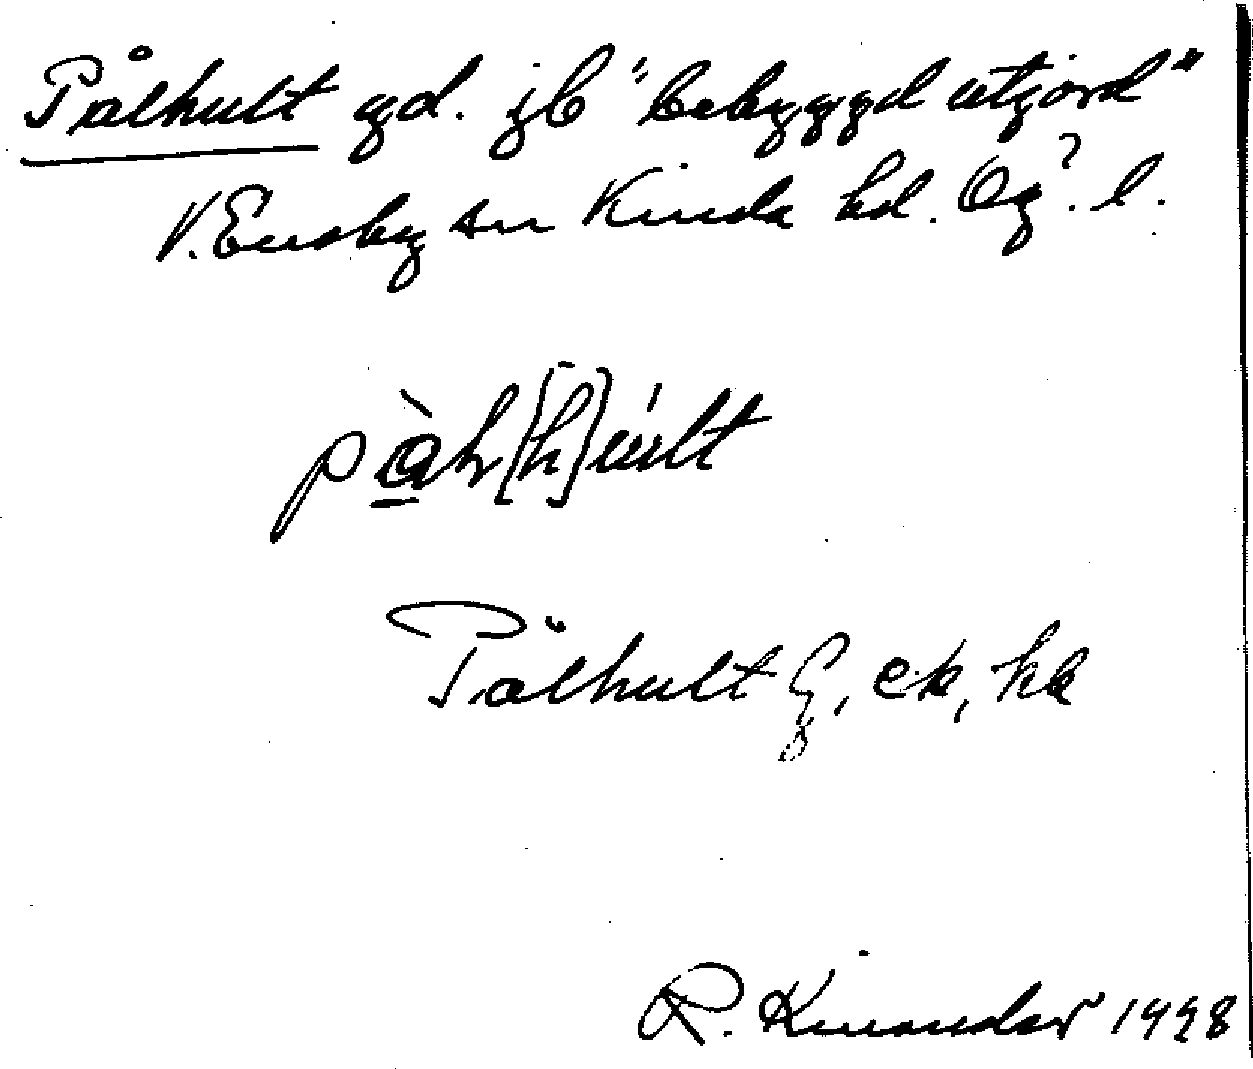 Pålhult gd. jb "bebyggd utjord"
V. Eneby sn Kinda hd. Ög. l.
Pålhult G, ek, hk
R. Kinander 1928